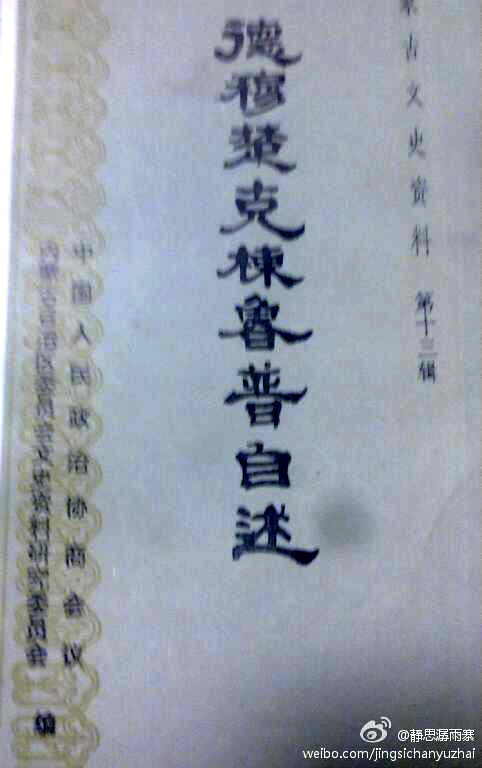 蒙古文史资料 第十三辑
德穆楚克栋鲁普自述
中国人民政治协商会议
内蒙古自治区委员会文史资料研究委员会 编
@静思潺雨寨
weibo.com/jingsichanyuzhai